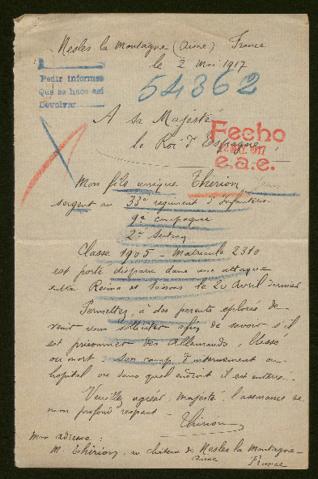 Nesles la Montagne (Aisne) France
le 2 mai 1917
1
Pedir informes
Que se hace así
Devolver
54362
A sa Majesté
le Roi d'Espagne
Fecho
e.a.e.
Mon fils unique Thérion
sergent au 33e régiment d'infanterie
9e compagnie
2e
Classe 1905 - Matricule 2310
est porté disparu dans une attaque
entre Reims et Soissons le 20 Avril dernier
Permettez à des parents éplorés de
venir vous solliciter afin de savoir s'il
est prisonnier des Allemands, blessé
ou mort, son camp d'internement ou
hopital ou dans quel endroit il est enterré.
Veuillez agréer, majesté, l'assurance de
mon profond respect -
Thérion
Mon adresse :
M Thérion, au château de Nesles la Montagne
Aisne
France